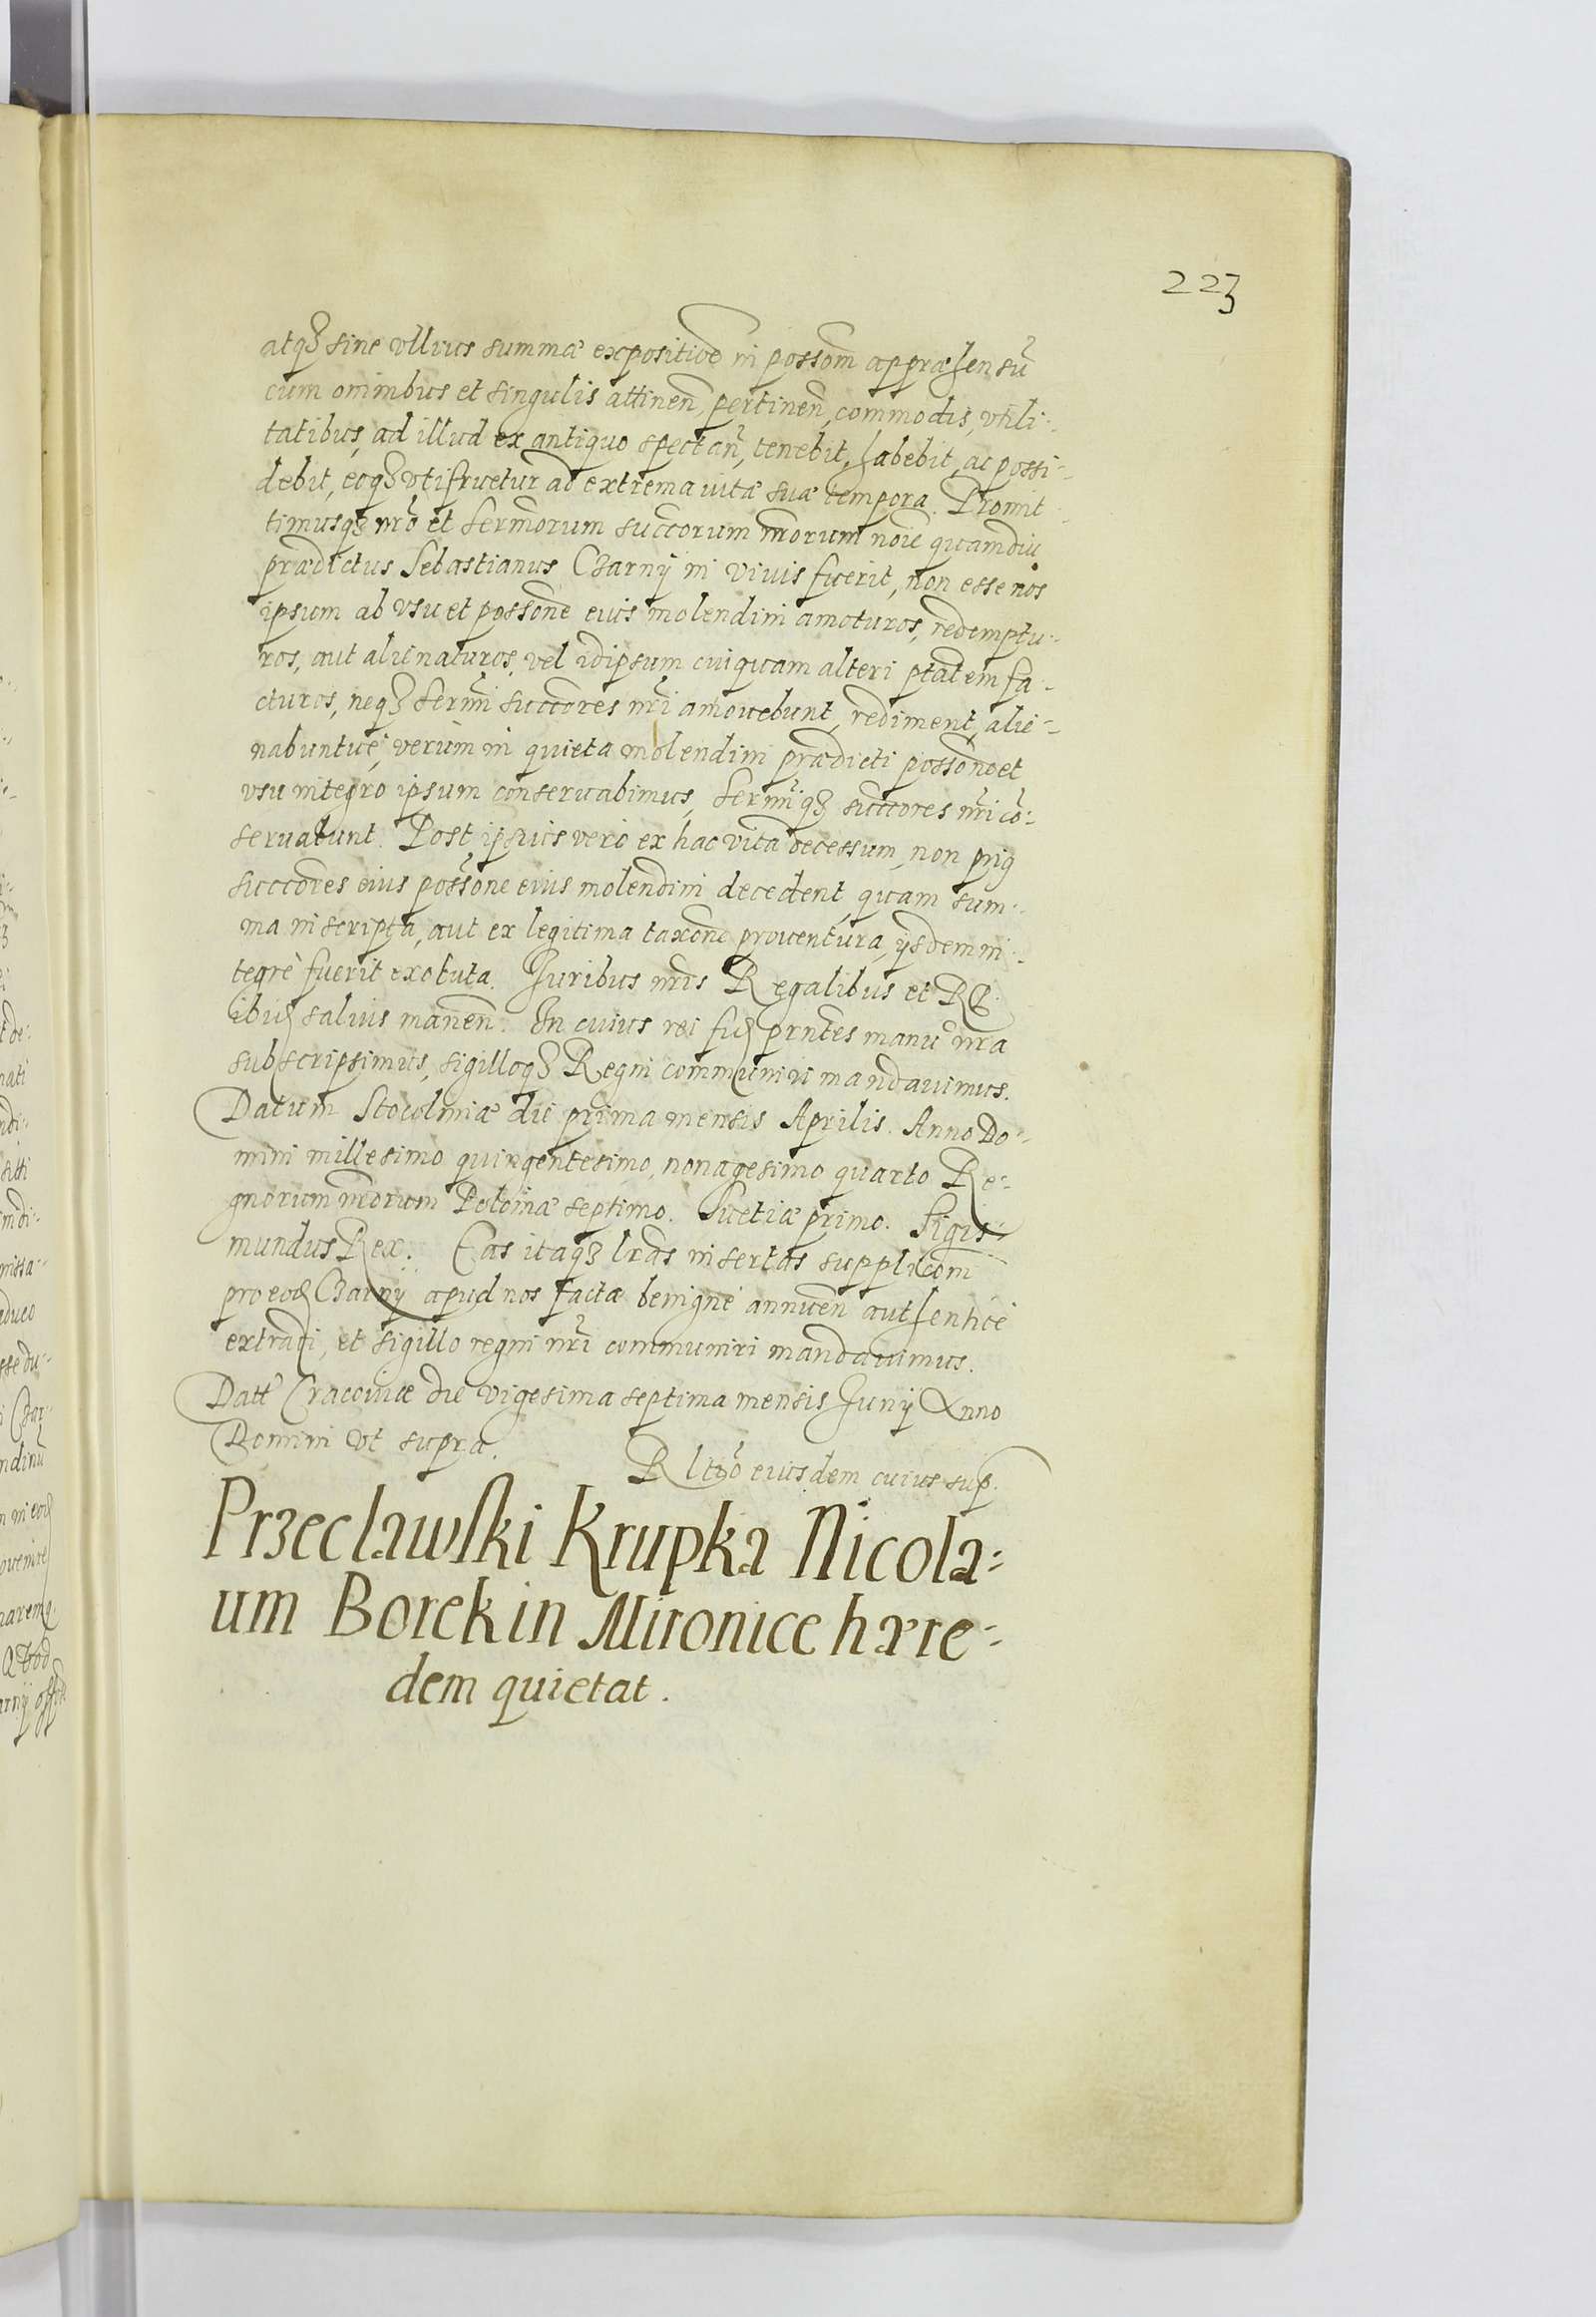 223
atqȝ sine vllius summæ expositiōe in possom̄ appræhensū
cum omnibus et singulis attinen̄, pertinen̄, commodis, vtili-
tatibus, ad illud ex antiquo spectan̄, tenebit, habebit, ac possi-
debit, eoqȝ vtifruetur ad extrema vitæ suæ tempora. Promit-
timusqȝ nr̄o et Serm̄orum succorum nr̄orum noīe quamdiu
prædictus Sebastianus Czarny in vivis fuerit, non esse nos
ipsum ab vsu et possōne eius molendini amoturos, redemptu-
ros, aut alienaturos, vel idipsum cuiquam alteri ptātem fa-
cturos, neqȝ Serm̄i succōres nr̄i amouebunt, rediment, alie-
nabuntue, verùm in quieta molendini prædicti possōne et
vsu integro ipsum conseruabimus, Serm̄iqȝ succōres nr̄i cō-
seruabunt. Post ipsius vero ex hac vita decessum, non prig
succōres eius possōne eius molendini decedent, quam sum-
ma inscripta, aut ex legitima taxōne prouentura, ijsdem in-
tegrè fuerit exoluta. Juribus nr̄is Regalibus et RP
ibus saluis manen̄. In cuius rei fid prn̄tes manu nr̄a
subscripsimus, sigilloqȝ Regni communiri mandauimus.
Datum Stocolmiæ die prima mensis Aprilis. Anno Do-
mini millesimo quingentesimo, nonagesimo quarto Re-
gnorum nr̄orum Poloniæ septimo. Suetiæ primo. Sigis-
mundus Rex. Eas itaqȝ lr̄as insertas supplicōni
pro eod Czarny apud nos factæ benigne annuen̄ authentice
extradi, et sigillo regni nr̄i communiri mandauimus.
Datt Cracouiæ die vigesima septima mensis Junij Anno
Domini vt supra.
R lt̄io eiusdem cuius sup.
Przeclawski Krupka Nicola-
um Borek in Mironice hære-
dem quietat.